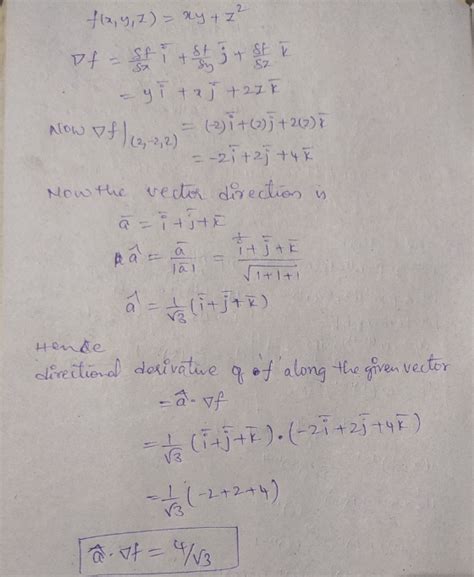 f(x,y,z) = xy + z²
∇f = δf/δx i̅ + δf/δy j̅ + δf/δz k̅
= y i̅ + x j̅ + 2z k̅
Now ∇f|(2,-2,2) = (-2)i̅ + (2)j̅ + 2(2)k̅
= -2i̅ + 2j̅ + 4k̅
Now the vector direction is
a̅ = i̅ + j̅ + k̅
â = a̅/|a̅| = i̅ + j̅ + k̅/√1+1+1
â = 1/√3 (i̅ + j̅ + k̅)
Hence
directional derivative of f along the given vector
= â · ∇f
= 1/√3 (i̅ + j̅ + k̅) · (-2i̅ + 2j̅ + 4k̅)
= 1/√3 (-2+2+4)
â · ∇f = 4/√3